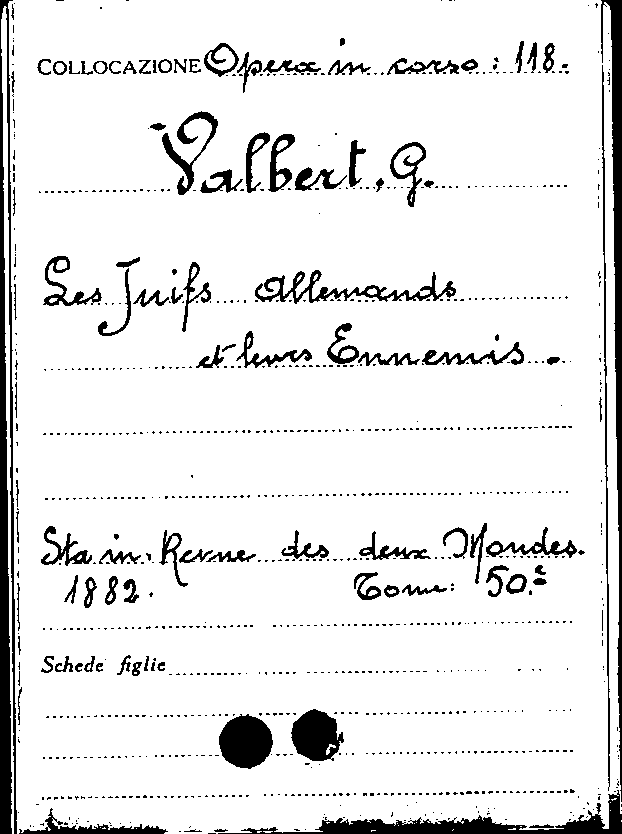 COLLOCAZIONE Opera in corso: 118.
Valbert. G.
Les Juifs Allemands
et leurs Ennemis.
Sta in: Revue des deux Mondes.
1882. Tome: 50.e
Schede figlie